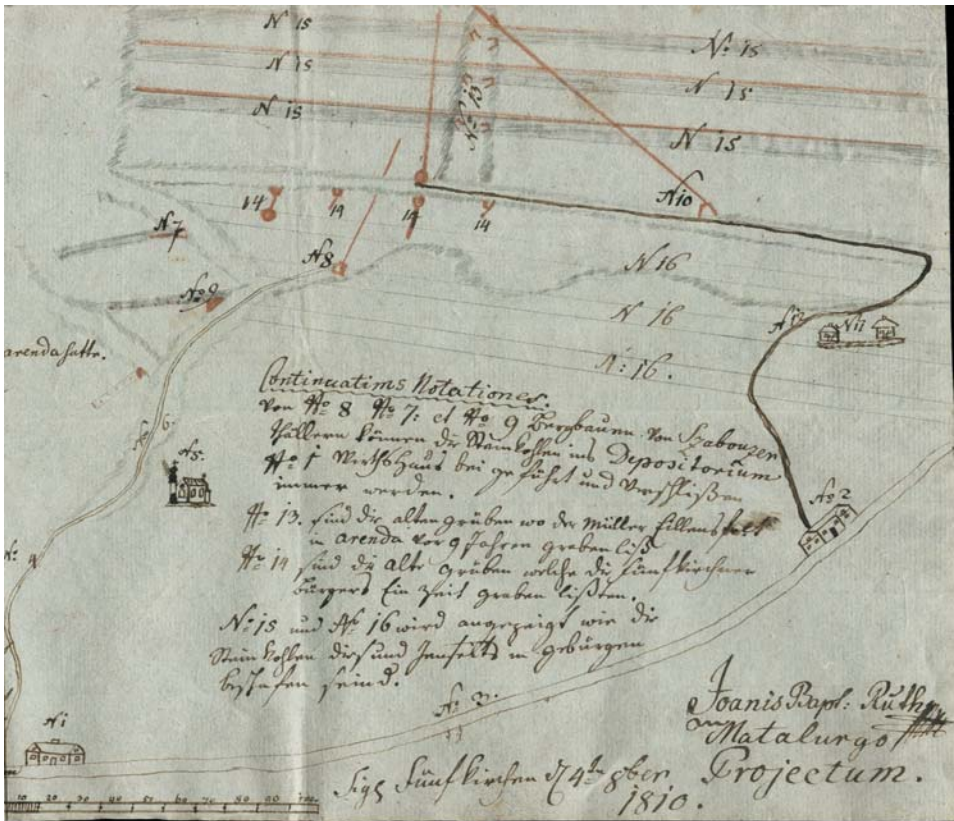 N 15
N: 15
N 15
N 15
N 15
N 15
N: 13
N 10
14
14
14
14
N 7
N 8
N 16
No 9
N 16
N 12
N 11
arenda hatte.
N: 16.
Continuatims Notationes.
von No 8 No 7: et No 9 Bergbauen von Szabouzer
No 6.
Thällern können die Steinkohlen ins Depositorium
No 5.
No 1 Wirthshaus bei geführt und Verschlißen
immer werden.
No 2
No 13. sind die alten gruben wo der Müller
in arenda vor 9 Jahren graben ließ
No 4
No 14 sind die alte gruben welche die Fünfkirchner
bürgers Ein Zeit graben lißten.
No 15 und No 16 wird angezeigt wie die
Stein Kohlen diss und Jenseits in gebürgen
beschafen seind.
No 3.
Joanis Bapt: Ruth
N 1
Matalurgo
Projectum.
Sigl Fünfkirchen d 4ten 8ber
1810.
10 20 30 40 50 60 70 80 90 100